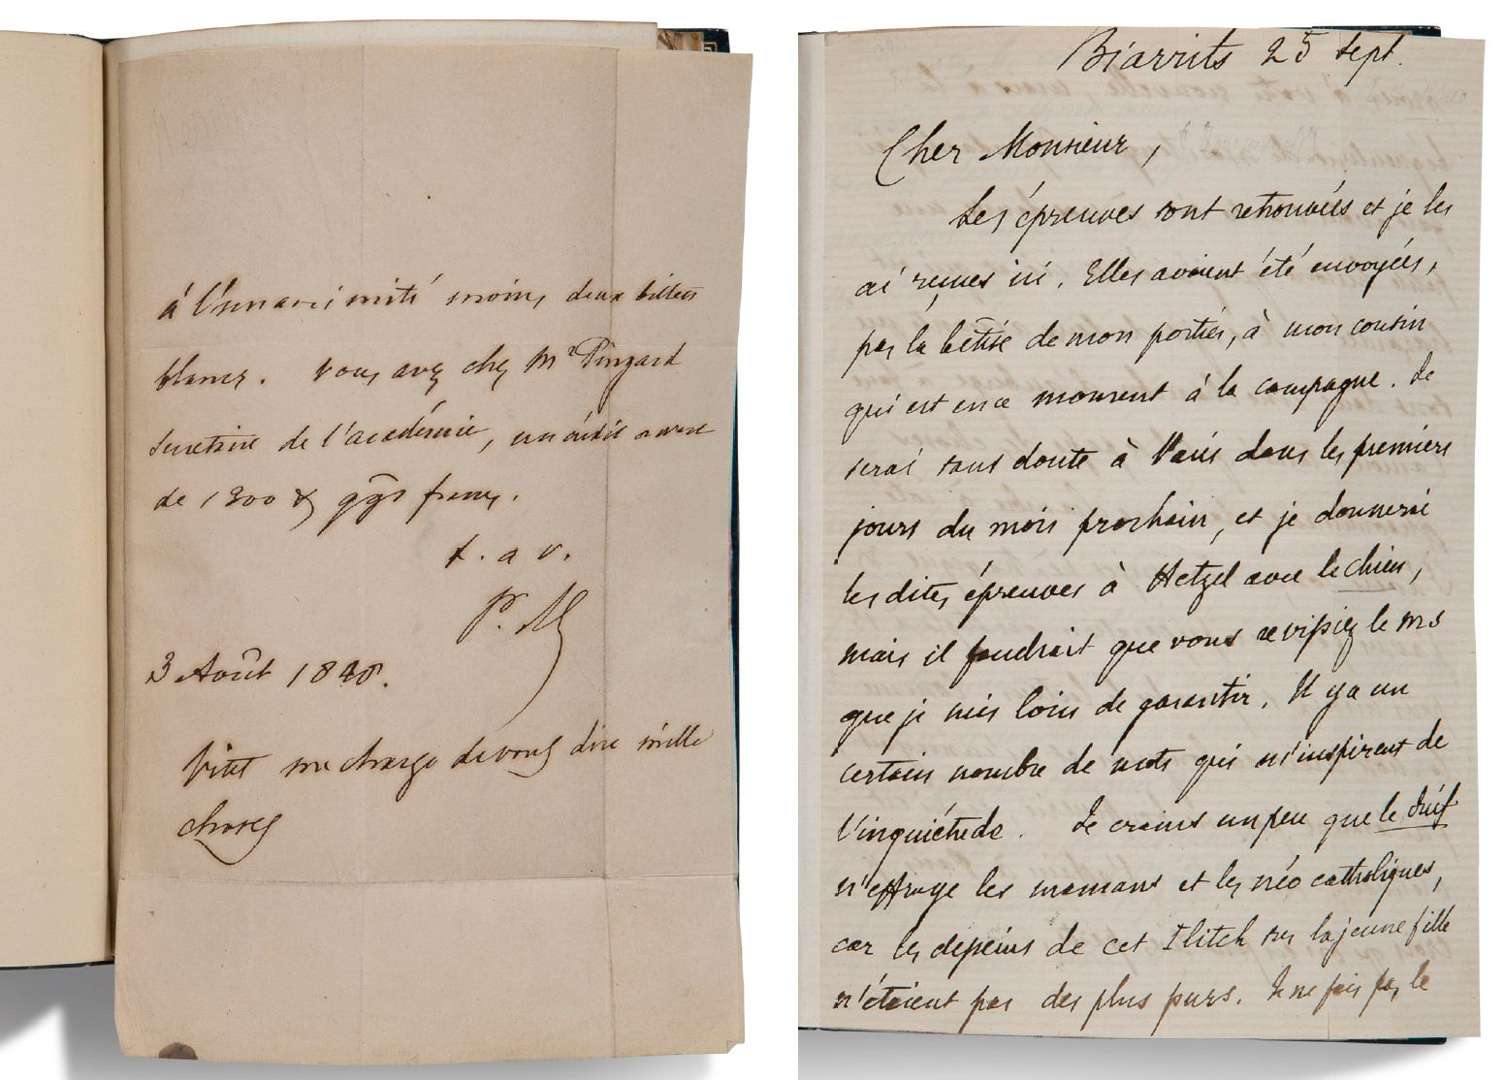 à l'unanimité moins deux billets
blancs. Vous avez chez Mr Pingard
secrétaire de l'académie, un crédit ouvert
de 1300 & qqs francs.
t. a v.
Pr. M
3 Août 1848.
Vitet me charge de vous dire mille
choses
Biarrits 25 sept.
Cher Monsieur,
Les épreuves sont retrouvées et je les
ai reçues ici. Elles avaient été envoyées,
par la bêtise de mon portier, à mon cousin
qui est en ce moment à la campagne. Je
serai sans doute à Paris dans les premiers
jours du mois prochain, et je donnerai
les dites épreuves à Hetzel avec le chien,
mais il faudrait que vous revissiez le ms
que je suis loin de garantir. Il y a un
certain nombre de mots qui m'inspirent de
l'inquiétude. Je crains un peu que le Juif
n'effraye les mamans et les néo catholiques,
car les desseins de cet Ilitch sur la jeune fille
n'étaient pas des plus purs. Je ne fais pas le